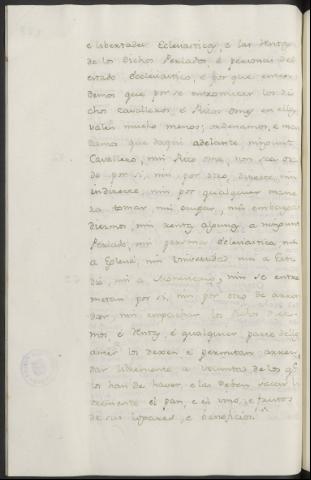 e libertades Eclesiasticas, e las Rentas
de los dichos Perlados, e personas del
estado Eclesiastico, e por que enten-
demos que por se entremeter los di-
chos cavalleros, e Ricos Omes en ello
valen mucho menos; ordenamos, e man-
damos que daqui adelante ningunt
Cavallero, nin Rico ome, non sea osa-
do por si, nin por otro, directe, nin
indirecte, nin por qualquier mane-
ra tomar, nin ocupar, nin embargar
diezmos, nin renta alguna, a ningunt
Perlado, nin persona Eclesiastica, nin
a Eglesia, nin Universidad, nin a Este
dia, nin a Monesterio, nin se entre-
metan por si, nin por otro de arren-
dar, nin empachar los dichos diez-
mos, e Rentas, e qualquier parte dellos
antes los dexen, e permitan arren-
dar libremente a voluntad de los que
los han de haver, e las deben
el pan, e el vino, e frutos
de sus logares, e beneficios